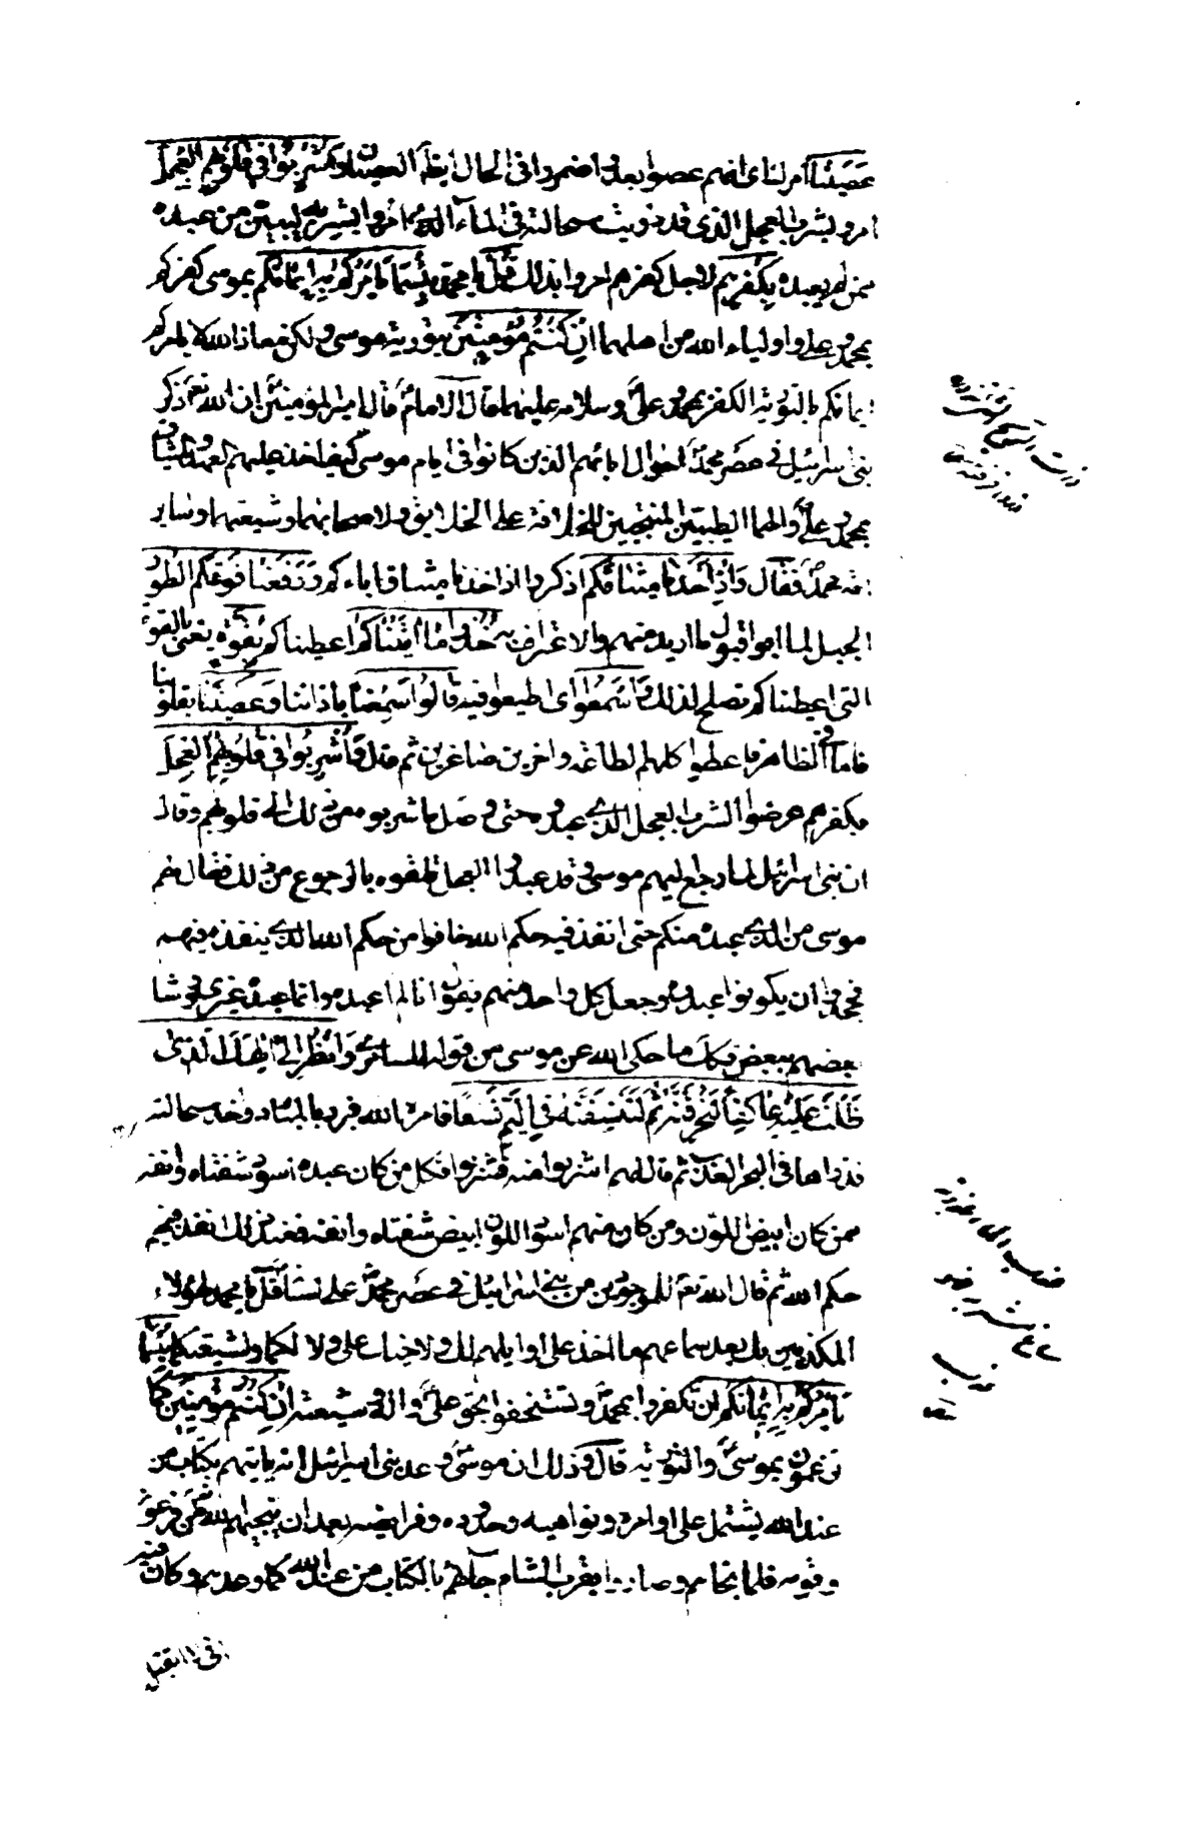 عَصَيْنَا امرلنا ای انهم عصوا بعد و اضمروا فی الحال ایضا العصیان وَاُشْرِبُوا فِی قُلُوبِهِمُ الْعِجْلَ
امروا بشرب العجل الذی قد ذریت سحالته فی الماء الذی امروا بشربه لیتبین من عبده
ممن لم یعبده بِکُفْرِهِمْ لاجل کفرهم امروا بذلک قُلْ یا محمد بِئْسَمَا یَاْمُرُکُمْ بِهِ اِیمَانُکُمْ بموسی کفرکم
بمحمد و علی و اولیاء الله من اهلهما اِنْ کُنْتُمْ مُؤْمِنِینَ بتوریة موسی و لکن معاذ الله لا یامرکم
ایمانکم بالتوریة الکفر بمحمد و علی و سلامه علیهما قال الامام قال امیر المؤمنین ان الله تعم ذکر
بنی اسرائیل فی عصر محمد احوال ابائهم الذین کانوا فی ایام موسی کیف اخذ علیهم العهد و المیثاق
بمحمد و علی و الهما الطیبین المنتجبین للخلافة علی الخلایق و لاصحابهما و شیعتهما و سایر
امة محمد فقال وَاِذْ اَخَذْنَا مِیثَاقَکُمْ اذکروا اذ اخذنا میثاق اباءکم وَرَفَعْنَا فَوْقَکُمُ الطُّورَ
الجبل لما ابوا قبول ما ارید منهم و الاعتراف به خُذُوا مَا اٰتَیْنَاکُمْ اعطیناکم بِقُوَّةٍ یعنی بالقوة
التی اعطیناکم تصلح لذلک وَاسْمَعُوا ای اطیعوا فیه قَالُوا سَمِعْنَا باذاننا وَعَصَیْنَا بقلوبنا
فاما فی الظاهر فاعطوا کلهم الطاعة داخرین صاغرین ثم قال وَاُشْرِبُوا فِی قُلُوبِهِمُ الْعِجْلَ
بکفرهم عرضوا لشرب العجل الذی عبدوه حتی وصل ما شربوه من ذلک الی قلوبهم و قال
ان بنی اسرائیل لما رجع الیهم موسی و قد عبدوا العجل تلقوه بالرجوع من ذلک فقال لهم
موسی من الذی عبده منکم حتی انفذ فیه حکم الله خافوا من حکم الله الذی ینفذه فیهم
فجحدوا ان یکونوا عبدوه و جعل کل واحد منهم یقول انا لم اعبده و انما عبده غیری و وشا
بعضهم ببعض فکذلک ما حکی الله عن موسی من قوله للسامری وَانْظُرْ اِلَی اِلٰهِکَ الَّذِی
ظَلْتَ عَلَیْهِ عَاکِفًا لَنُحَرِّقَنَّهُ ثُمَّ لَنَنْسِفَنَّهُ فِی الْیَمِّ نَسْفًا فامره الله فبرده بالمبارد و اخذ سحالته
فذراها فی البحر العذب ثم قال لهم اشربوا منه فشربوا فکل من کان عبده اسود شفتاه و انفه
ممن کان ابیض اللون و من کان منهم اسود اللون ابیض شفتاه و انفه فعند ذلک انفذ فیهم
حکم الله ثم قال الله تعم للموجودین من بنی اسرائیل فی عصر محمد علی لسانه قل یا محمد لهؤلاء
المکذبین بک بعد سماعهم ما اخذ علی اوایلهم لک و لاخیک علی و لالکما و لشیعتکما بِئْسَمَا
یَاْمُرُکُمْ بِهِ اِیمَانُکُمْ ان تکفروا بمحمد و تستخفوا بحق علی و اله و شیعته اِنْ کُنْتُمْ مُؤْمِنِینَ کما
تزعمون بموسی و التوریة قال و ذلک ان موسی وعد بنی اسرائیل انه یاتیهم بکتاب من
عند الله یشتمل علی اوامره و نواهیه و حدوده و فرایضه بعد ان ینجیهم الله من فرعون
و قومه فلما نجاهم و صاروا بقرب الشام جاءهم بالکتاب من عند الله کما وعدهم و کان فیه